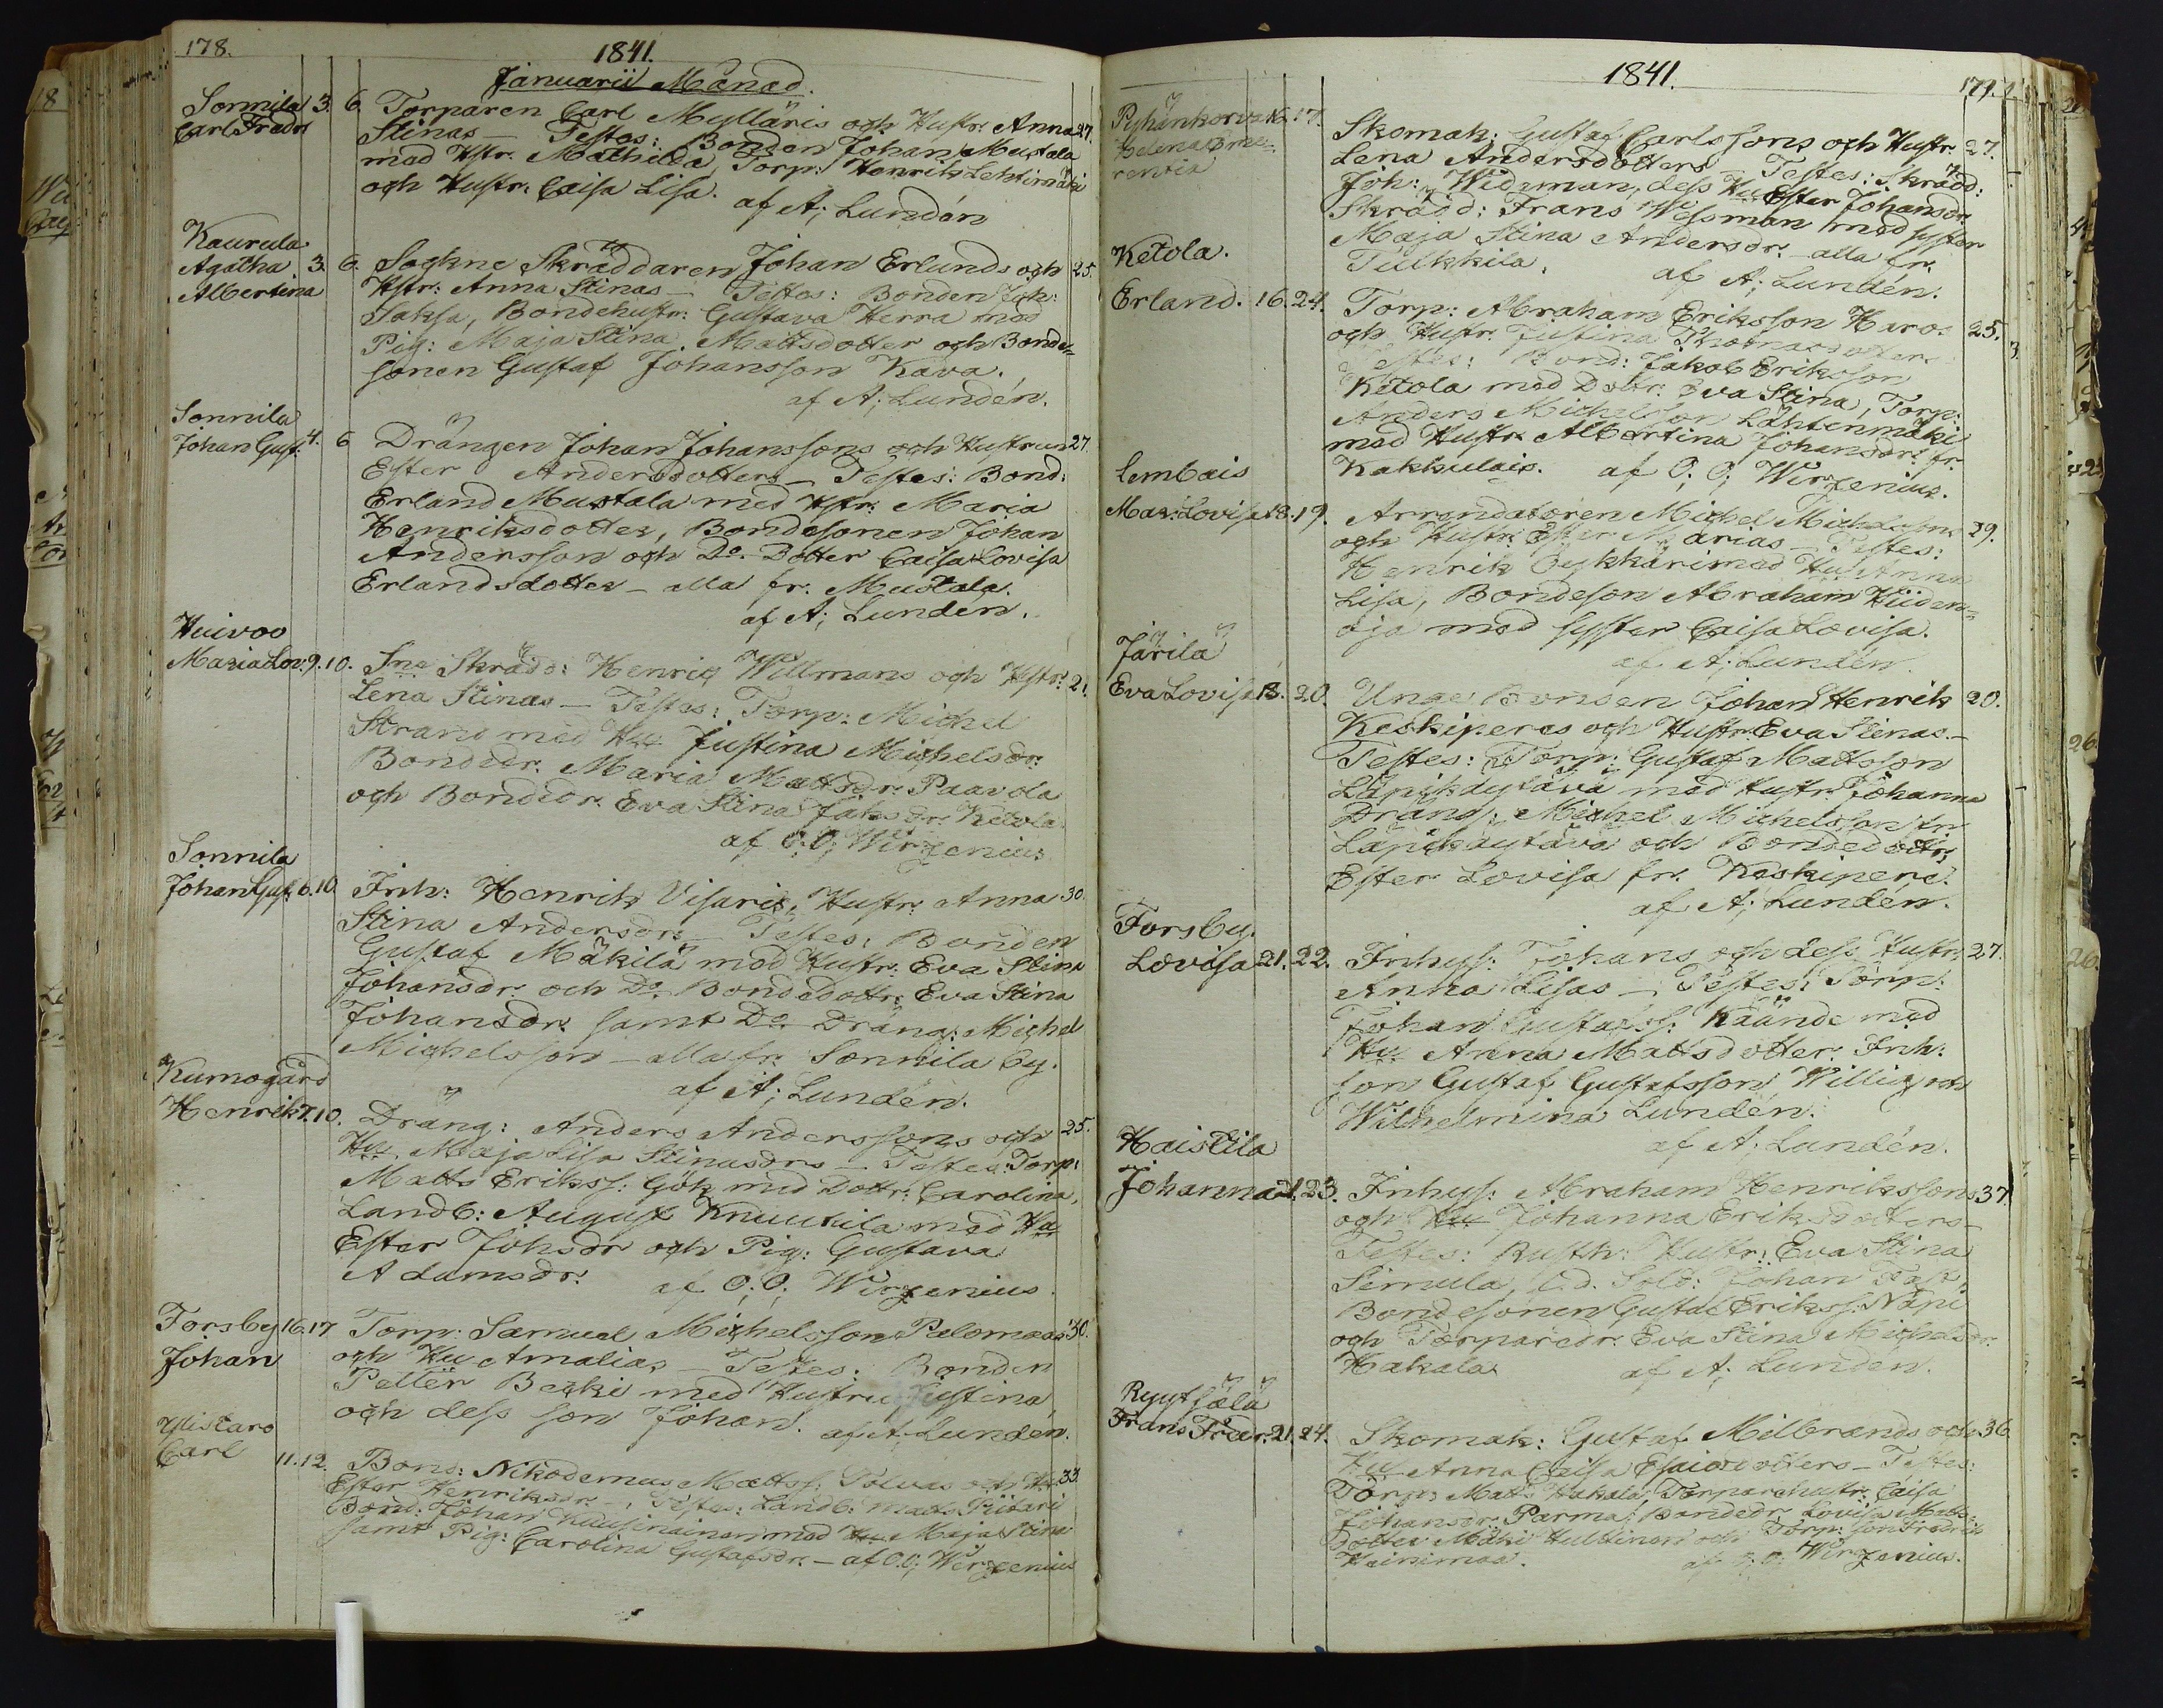 178.
1841.
Januarii Månad.
Sonnila 3. 6. Torparen Carl Mylläris och Hustr: Anna 27.
Carl Fredr.
Stinas — Testes: Bonden Johan Mustala
med Hstr. Mathilda, Torp: Henrik Lehtimäki
och Hustr: Caisa Lisa.
af A; Lundén
Kaurula
Agatha 3. 6. Sockne Skräddaren Johan Erlunds och 25.
Albertina
Hstr: Anna Stinas — Testes: Bonden Joh:
Saksa, Bondehustr: Gustava Herra med
Pig: Maja Stina Mattsdotter och Bonde=
sonen Gustaf Johansson Kava.
af A; Lundén.
Sonnila
Johan Gust: 4. 6 Drängen Johan Johanssons och Hustrun 27
Ester Andersdotters — Testes: Bond:
Erland Mustala med Hstr: Maria
Henriksdotter, Bondesonen Johan
Andersson och Do. Dotter Caisa Lovisa
Erlandsdotter — alla fr. Mustala.
af A; Lundén.
Huivoo
Maria Lov: 9. 10. Sne Skrädd: Henric Willmans och Hstr: 21.
Lena Stinas — Testes: Torp: Michel
Strand med Hu Justina Michelsdr.
Bondedr. Maria Mattsdr. Paavola
och Bondedr. Eva Stina Jaksdr. Ketola
af O; O; Wirzenius.
Sonnila
Johan Gust: 6. 10 Inh: Henrik Visaris, Hustr: Anna 30.
Stina Andersdr: — Testes: Bonden
Gustaf Mäkilä med Hustr: Eva Stina
Johansdr. och Do. Bondedottr: Eva Stina
Johansdr. samt Do. Dräng: Michel
Michelsson — alla fr. Sonnila by.
af A; Lundén.
Kumogård
Henrik 7. 10. Dräng: Anders Anderssons och 25.
Hu. Maja Lisa Stinasdrs — Testes: Torp:
Matts Erikss: Gök med Dottr: Carolina,
Landb: August Knuutila med Hu
Ester Johsdr och Pig: Gustava
Adamsdr.
af O; O; Wirzenius.
Forsby 16. 17 Torp: Samuel Michelsson Palomaas 30.
Johan
och Hu Amalias — Testes: Bonden
Petter Becki med Hustru Justina,
och dess son Johan.
af A; Lundén.
Ylistaro
Carl 11. 12. Bond: Nikodemus Mattss: Polvas och Hu 33.
Ester Henriksdr. —, Testes: Landb: Matts Piitari
Bond: Johan Kuusinainen med Hu. Maja Stina
samt Pig: Carolina Gustafsdr. — af O.O; Wirzenius
1841.
179.
Pyhänkorva 16. 17.
Helena Eme=
rentia
Skomak: Gustaf Carlssons och Hustr: 27.
Lena Andersdotters Testes: Skrädd:
Joh: Wideman, dess Hu Ester Johansdr.
Skrädd: Frans Wessman med syster
Maja Stina Andersdr. alla fr.
Tulkkila.
af A; Lundén.
Ketola.
Erland. 16. 24. Torp: Abraham Eriksson Haro 25.
och Hustr. Justina Thomasdotters
Testes: Bond: Jakob Eriksson
Ketola med Dottr: Eva Stina, Torp:
Anders Michelsson Lähtenmäki
med Hustr: Albertina Johansdr. fr.
Kakkulais. af O; O; Wirzenius.
Lembais
Mar: Lovisa 18. 19. Arrendatoren Michel Michelssons 29.
och Hustr: Ester Marias — Testes:
Henrik Cykkäri med Hu Anna
Lisa, Bondeson Abraham Hiiden=
oja med syster Caisa Lovisa.
af A; Lundén.
Järilä
Eva Lovisa 18. 20. Unge Bonden Johan Henrik 20.
Keskiperes och Hustr: Eva Stinas. —
Testes: Torp: Gustaf Mattsson
Länsikäytävä med Hustr. Johanna
Dräng: Michel Michelsson fr.
Länsikäytävä och Bondedottr:
Ester Lovisa fr. Keskipere.
af A; Lundén.
Forsby.
Lovisa 21. 22. Inhys: Johans och dess Hustr. 27.
Anna Lisas —, Testes: Torp:
Johan Gustafss: Käände med
Hu Anna Mattsdotter. Inh:
son Gustaf Gustafsson Willig och
Wilhelmina Lundén.
af A; Lundén.
Haistila
Johanna 21. 23. Inhys: Abraham Henrikssons 37.
och Hu Johanna Eriksdotters —
Testes: Rusth: Hustr: Eva Stina
Simula, Sold: Johan Fast,
Bondesonen Gustaf Erikss: Näpi
och Torparedr. Eva Stina Michelsdr.
Hakala
af A; Lundén.
Ryytsälä
Frans Fredr. 21. 24. Skomak: Gustaf Milbrands och 36
Hu Anna Caisa Esaiædotters — Testes:
Torp: Matts Hakala, Torparehustr. Caisa
Johansdr. Parma, Bondedr. Lovisa Matts=
dotter Mäki Hultinen och Torp: son Fredrik
Heinimaa.
af O; O; Wirzenius.